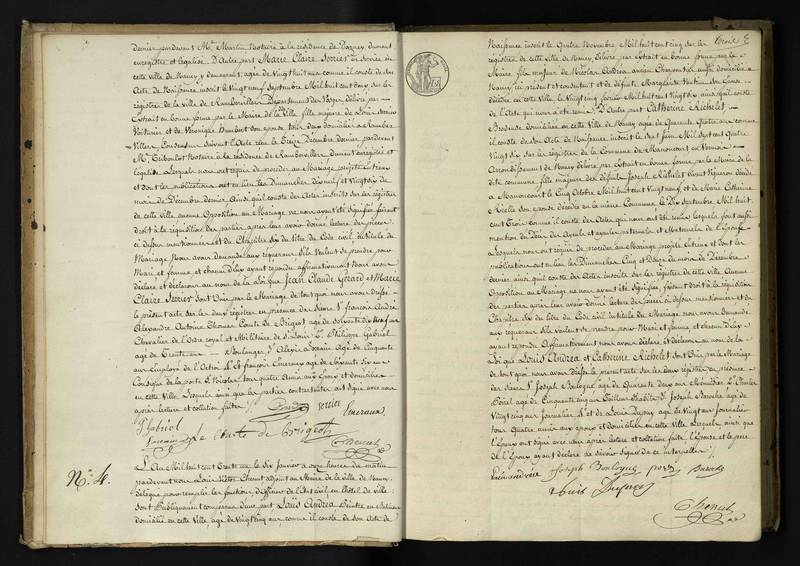 dernier pardevant Me Martin Notaire à la résidence de Darney, dument
enregistré et légalisé. D'autre part Marie Claire Serrier en service en
cette ville de Nancy, y demeurant, agée de Vingt huit ans comme il conste de son
Acte de Naissance inscrit le Vingt neuf Septembre Mil huit cent
registres de la ville de Rambervillers Département des Vosges délivré par
Extrait en bonne forme par le Maire de la Ville fille majeure de Louis Serrier
et de Véronique Humbert son épouse tous deux domiciliés à Rambervillers
suivant l'Acte reçu le Treize Décembre dernier pardevant
Me Notaire à la résidence de Rambervillers dument enregistré et
légalisé Lesquels nous ont requis de procéder au Mariage projeté entr'eux
et dont les publications ont eu lieu les Dimanches dix neuf et Vingt six du
mois de Décembre dernier. Ainsi qu'il conste des Actes inscrits sur les registres
de cette ville aucune Opposition au Mariage ne nous ayant été signifiée faisant
droit à la réquisition des parties après leur avoir donné lecture des pièces
ci dessus mentionnées et du Chapitre Six du titre du Code civil, intitulé du
Mariage Nous avons demandé aux requérans s'ils veulent se prendre pour
Mari et femme et chacun d'eux ayant répondu affirmativement Nous avons
déclaré et déclarons au nom de la loi que Jean Claude Gérard et Marie
Claire Serrier sont Unis par le Mariage de tout quoi nous avons dressé
le présent acte sur les deux registres en présence de Sieurs 1° François André
Alexandre Antoine Thomas Comte de Brigeot agé de soixante dix neuf ans
Chevalier de l'Ordre royal et Militaire de St Louis 2° Philippe Gabriel
agé de Trente ans Boulanger 3° Alexis agé de Cinquante
ans Employé de l'Octroi 4° François Emeraux agé de Soixante Six ans
Consigne de la porte St Nicolas tous quatre Amis aux Epoux et domiciliés
en cette Ville. Lesquels ainsi que les parties contractantes ont signé avec nous
après lecture et collation faites.
Serrier Emeraux
P Gabriel
le Comte de Brigeot
Chenut
N°. 4.
L'An Mil huit cent Trente un le Six Janvier à onze heures du matin
pardevant nous Louis Chenut adjoint au Maire de la ville de Nancy,
délégué pour remplir les fonctions d'Officier de l'Etat civil, en l'Hôtel de Ville
sont Publiquement comparus d'une part Louis Andrea Peintre en Bâtimens
domicilié en cette Ville agé de Vingt cinq ans comme il conste de son Acte de
Trois
Naissance inscrit le Quatre Novembre Mil huit cent cinq sur les
registres de cette ville de Nancy, délivré par Extrait en bonne forme par le
Maire, fils majeur de Nicolas Andrea ancien Charpentier aussi domicilié à
Nancy ici présent et consentant et de défunte Marguerite son Epouse
décédée en cette Ville le Vingt cinq février Mil huit cent Vingt dix, ainsi qu'il conste de
l'Acte qui nous a été remis. D'autre part Catherine Richelet
Brodeuse domiciliée en cette Ville de Nancy agée de Quarante Quatre ans comme
il conste de son Acte de Naissance inscrit le Sept Juin Mil Sept cent Quatre
Vingt dix sur les registres de la Commune de Manoncourt en Vermois
Arrondissement de Nancy délivré par Extrait en bonne forme par le Maire de la
dite commune fille majeure des défunts Joseph Richelet vivant Vigneron décédé
à Manoncourt le Cinq Octobre Mil huit cent Vingt neuf et de Marie Catherine
son épouse décédée en la même Commune le Dix Septembre Mil huit
cent Trois Comme il conste des Actes qui nous ont été remis lesquels font aussi
mention du Décès des Ayeuls et ayeules paternels et Maternels de l'Epouse
Lesquels nous ont requis de procéder au Mariage projeté entr'eux et dont les
publications ont eu lieu les Dimanches Cinq et Douze du mois de Décembre
dernier ainsi qu'il conste des Actes inscrits sur les registres de cette ville Aucune
Opposition au Mariage ne nous ayant été signifiée, faisant droit à la réquisition
des parties après leur avoir donné lecture des pièces ci dessus mentionnées et du
Chapitre Six du titre du Code civil intitulé du Mariage Nous avons demandé
aux requérans s'ils veulent se prendre pour Mari et femme et chacun d'eux
ayant répondu Affirmativement Nous avons déclaré et déclarons au nom de la
Loi que Louis Andrea et Catherine Richelet sont Unis par le Mariage
de tout quoi nous avons dressé le présent acte sur les deux registres en présence
des Sieurs 1° Joseph agé de Quarante deux ans 2° Charles
agé de Cinquante cinq ans Tailleur d'habits 3° Joseph agé de
Vingt cinq ans Journalier 4° et de Louis Dupay agé de Vingt ans Journalier
tous Quatre amis aux époux et domiciliés en cette ville Lesquels, ainsi que
l'Epoux ont signé avec nous après lecture et collation faite, l'Epouse et le père
de l'Epoux ayant déclaré ne savoir signer de ce interpellés
Joseph
Louis
Chenut